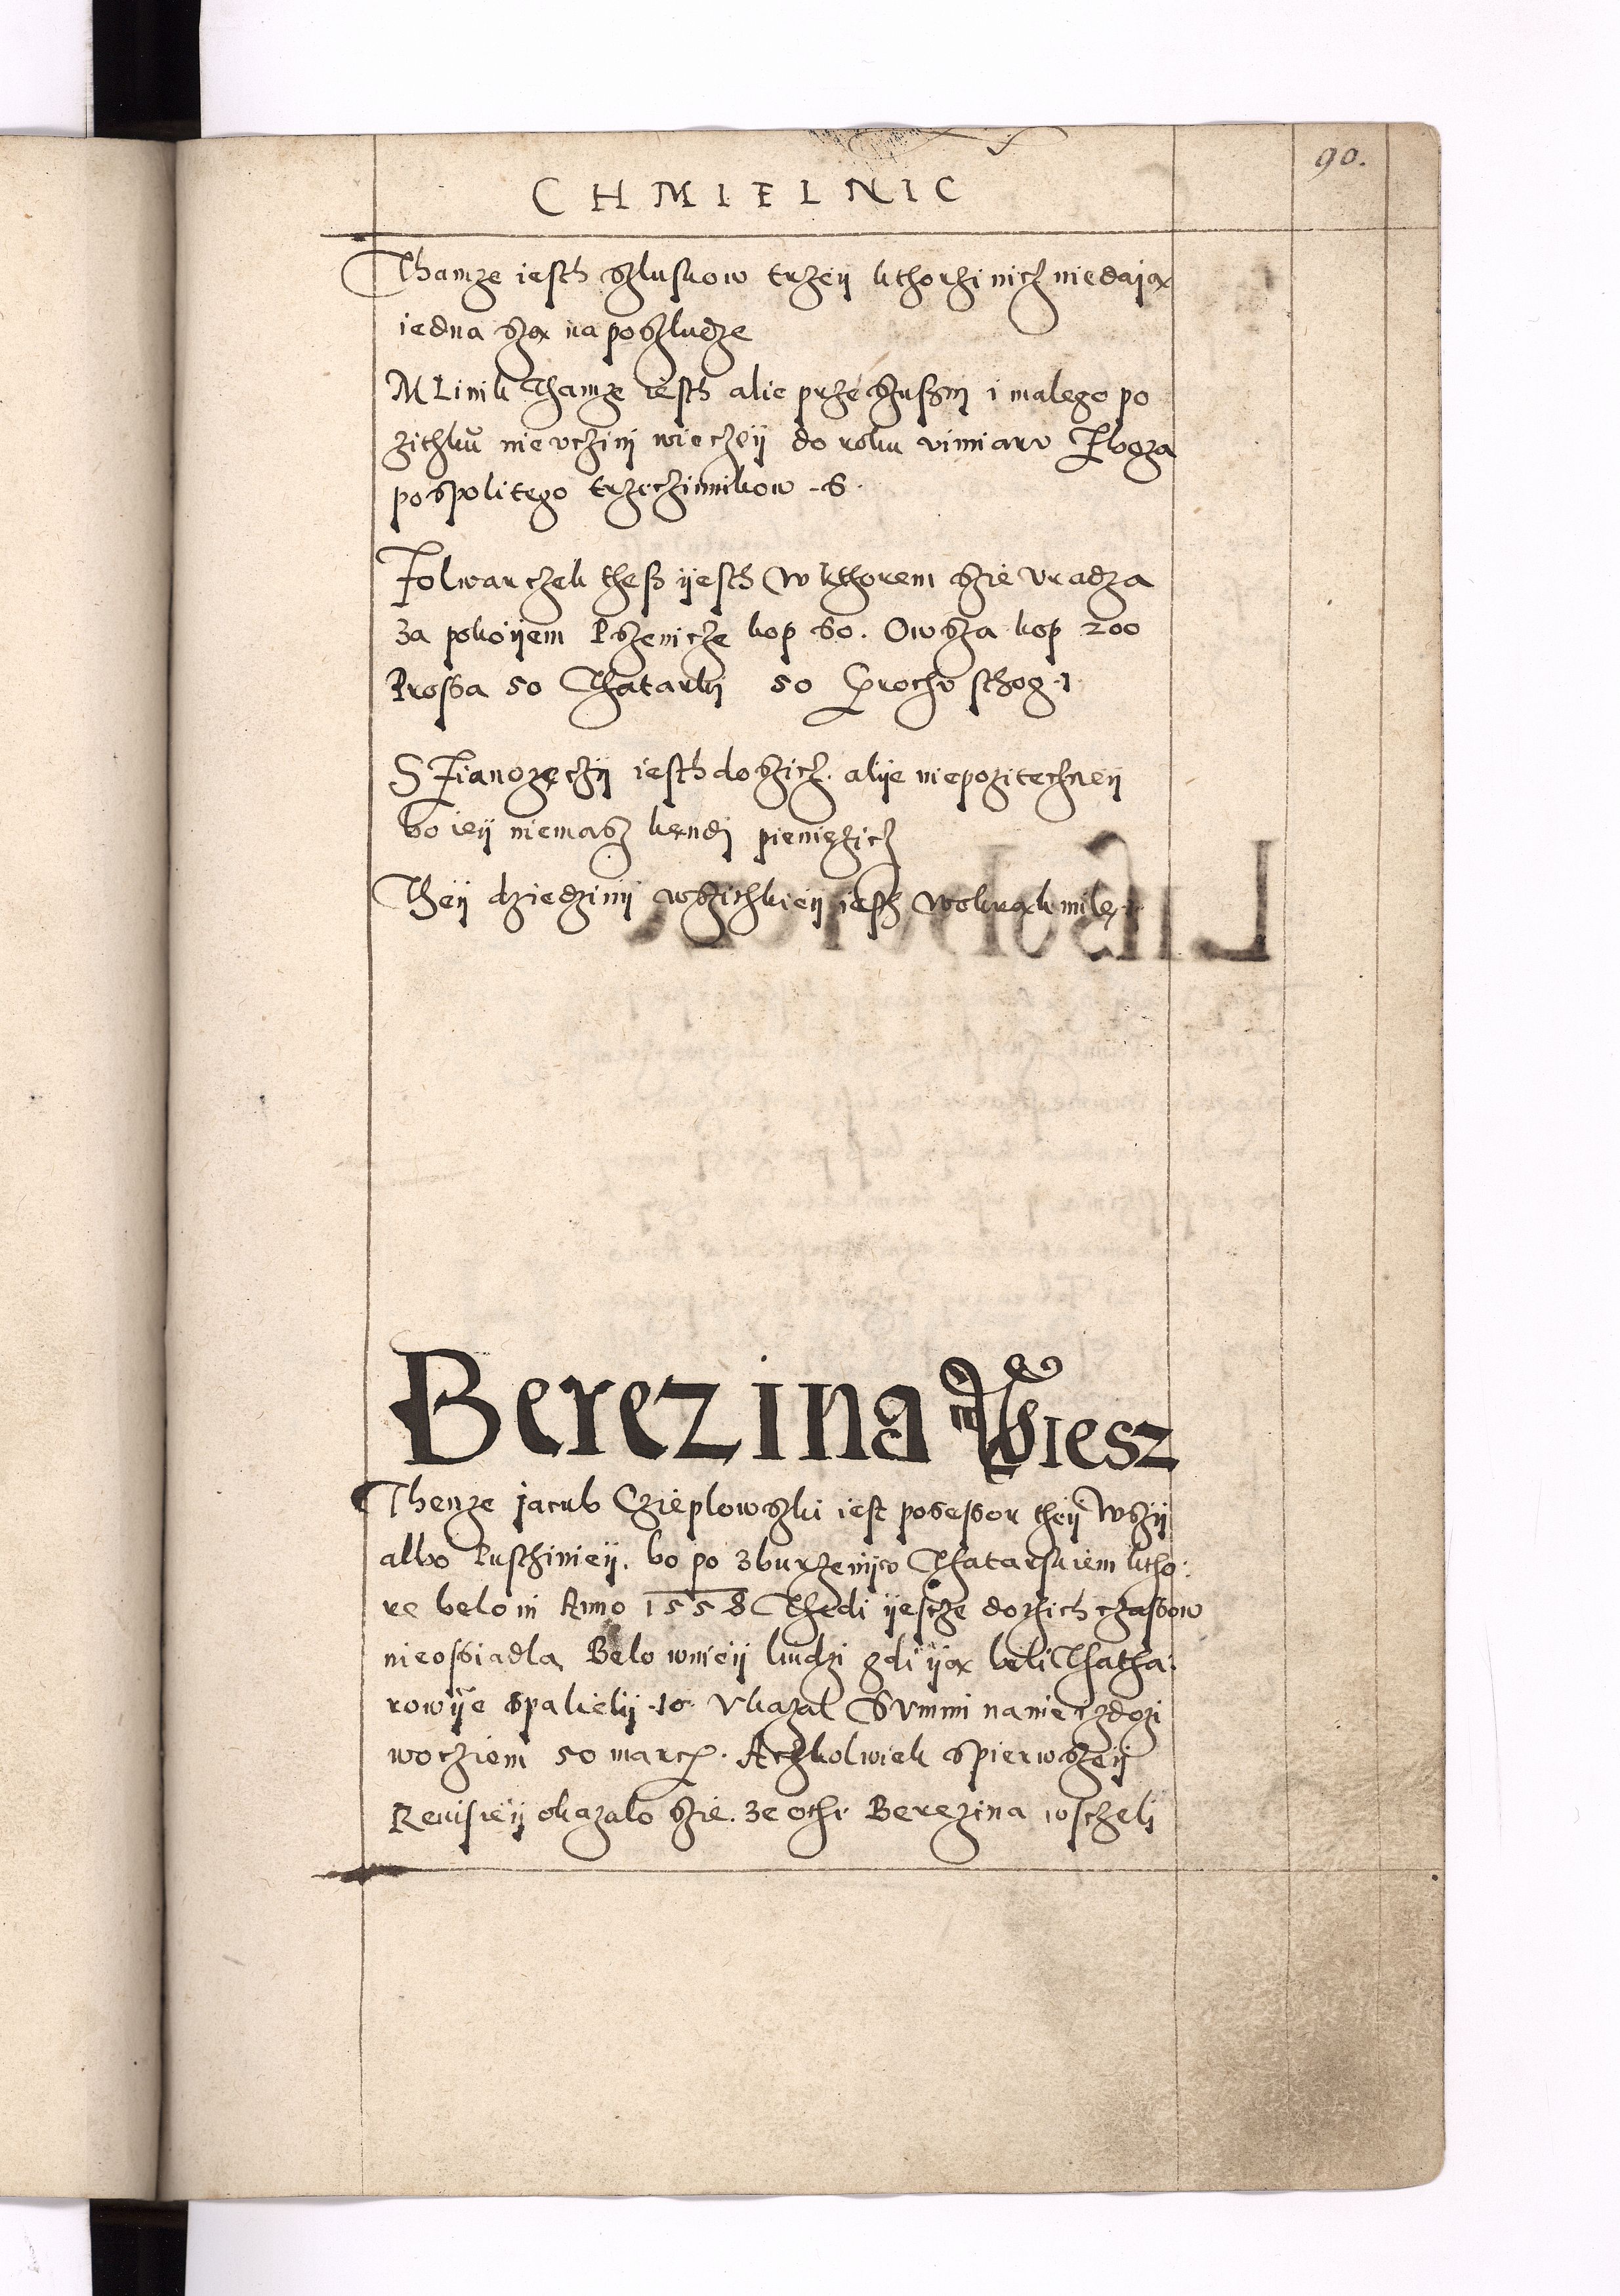 90.
CHMIELNIC
Thamze iesth szluskow trzeÿ kthorzi nicz niedaÿą
iedna szą na poszludze
MLinik Thamze iesth alie prze szuszni i malego po
zithku nie vczini wieczeÿ do roku vimiaru zboza
pospolitego trzecziinnikow .6.
Folwarczek thesz ÿesth w kthorem szie vradza
za pokoÿem Pszenicze kop 60. Owsza kop 200
Prossa 50 Thatarki 50 Grochv sthog .1.
SFianozęczÿ iesth doszicz. alÿe niepozitechneÿ
bo ieÿ niemasz kęndi pieniężicz
Theÿ dziedzinÿ wszithkieÿ iesth wokrąk milę .1.
Berezina Wiesz
Thenze Jacub Czieplowszki iest possessor theÿ Wszÿ
albo Pusthinieÿ. bo po zburzenÿv Thatarskiem ktho-
re belo in Anno 1558 Thedi ÿescze dothich czassow
nieossiadla Belo wnieÿ liudzi gdi ÿą beli Thatha-
rowÿe spalielÿ .10. Vkazal Summi nanie zdozi
wocziem 50 marcz. Aczkolwiek spierwszeÿ
Reuisieÿ okazalo szie. ze otho Berezina wscheli